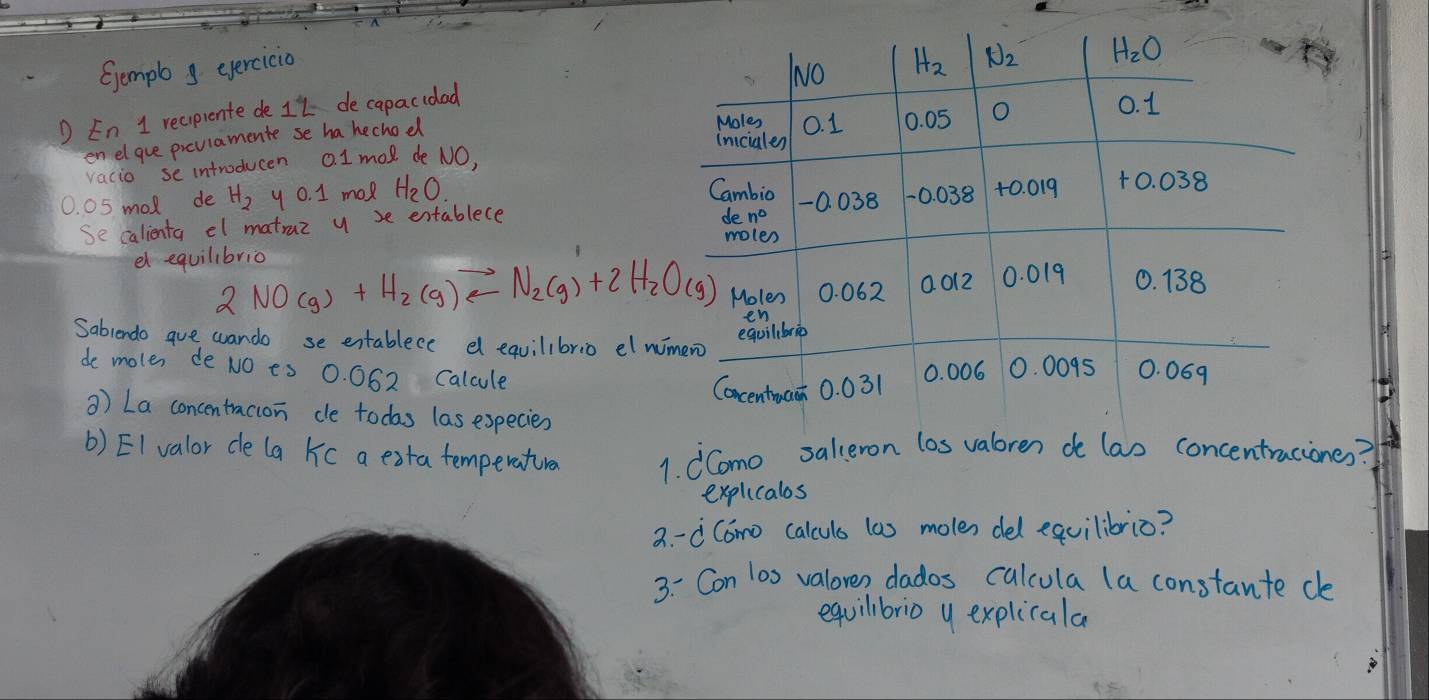 Ejemplo y ejercicio
1) En 1 recipiente de 1L de capacidad
en el que previamente se ha hecho el
vacio se introducen 0.1 mol de NO,
0.05 mol de H₂ y 0.1 mol H₂O.
Se calienta el matraz y se establece
el equilibrio
2 NO(g) + H₂(g) ⇄ N₂(g) + 2 H₂O(g)
Sabiendo que cuando se establece el equilibrio el número
de moles de NO es 0.062 Calcule
a) La concentración de todas las especies
b) El valor de la Kc a esta temperatura
NO H₂ N₂ H₂O
Moles iniciales 0.1 0.05 0 0.1
Cambio de nº moles -0.038 -0.038 +0.019 +0.038
Moles en equilibrio 0.062 0.012 0.019 0.138
Concentración 0.031 0.006 0.0095 0.069
1. ¿Como salieron los valores de las concentraciones?
explicalos
2.- ¿Cómo calculo las moles del equilibrio?
3.- Con los valores dados calcula la constante de
equilibrio y explicala